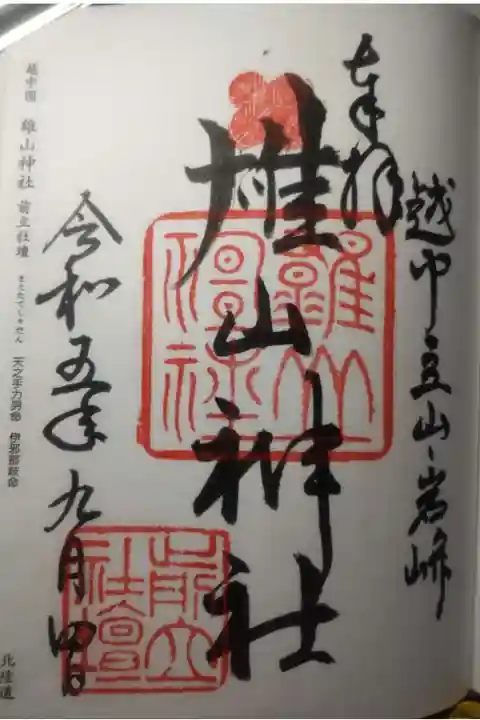 奉拝
越中立山岩峅
雄山神社
雄山神社
前立社壇
令和五年九月四日
越中国 雄山神社 前立社壇 まえたてしゃだん 天之手力男命 伊邪那岐命
北陸道